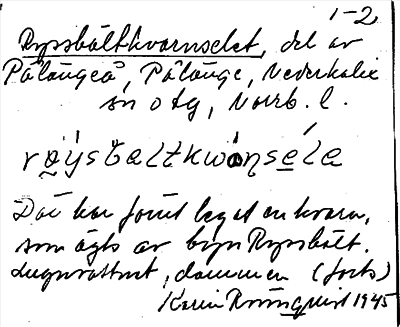 1-2
Rypsbältkvarnselet, del av
Pålängeå, Pålänge, Nederkalix
sn o tg, Norrb. l.
røÿsbæltkwαηsela
Där har förut legat en kvarn,
som ägts av byn Rypsbält.
Lugnvattnet, dammen (forts)
Karin Rönnquist 1945